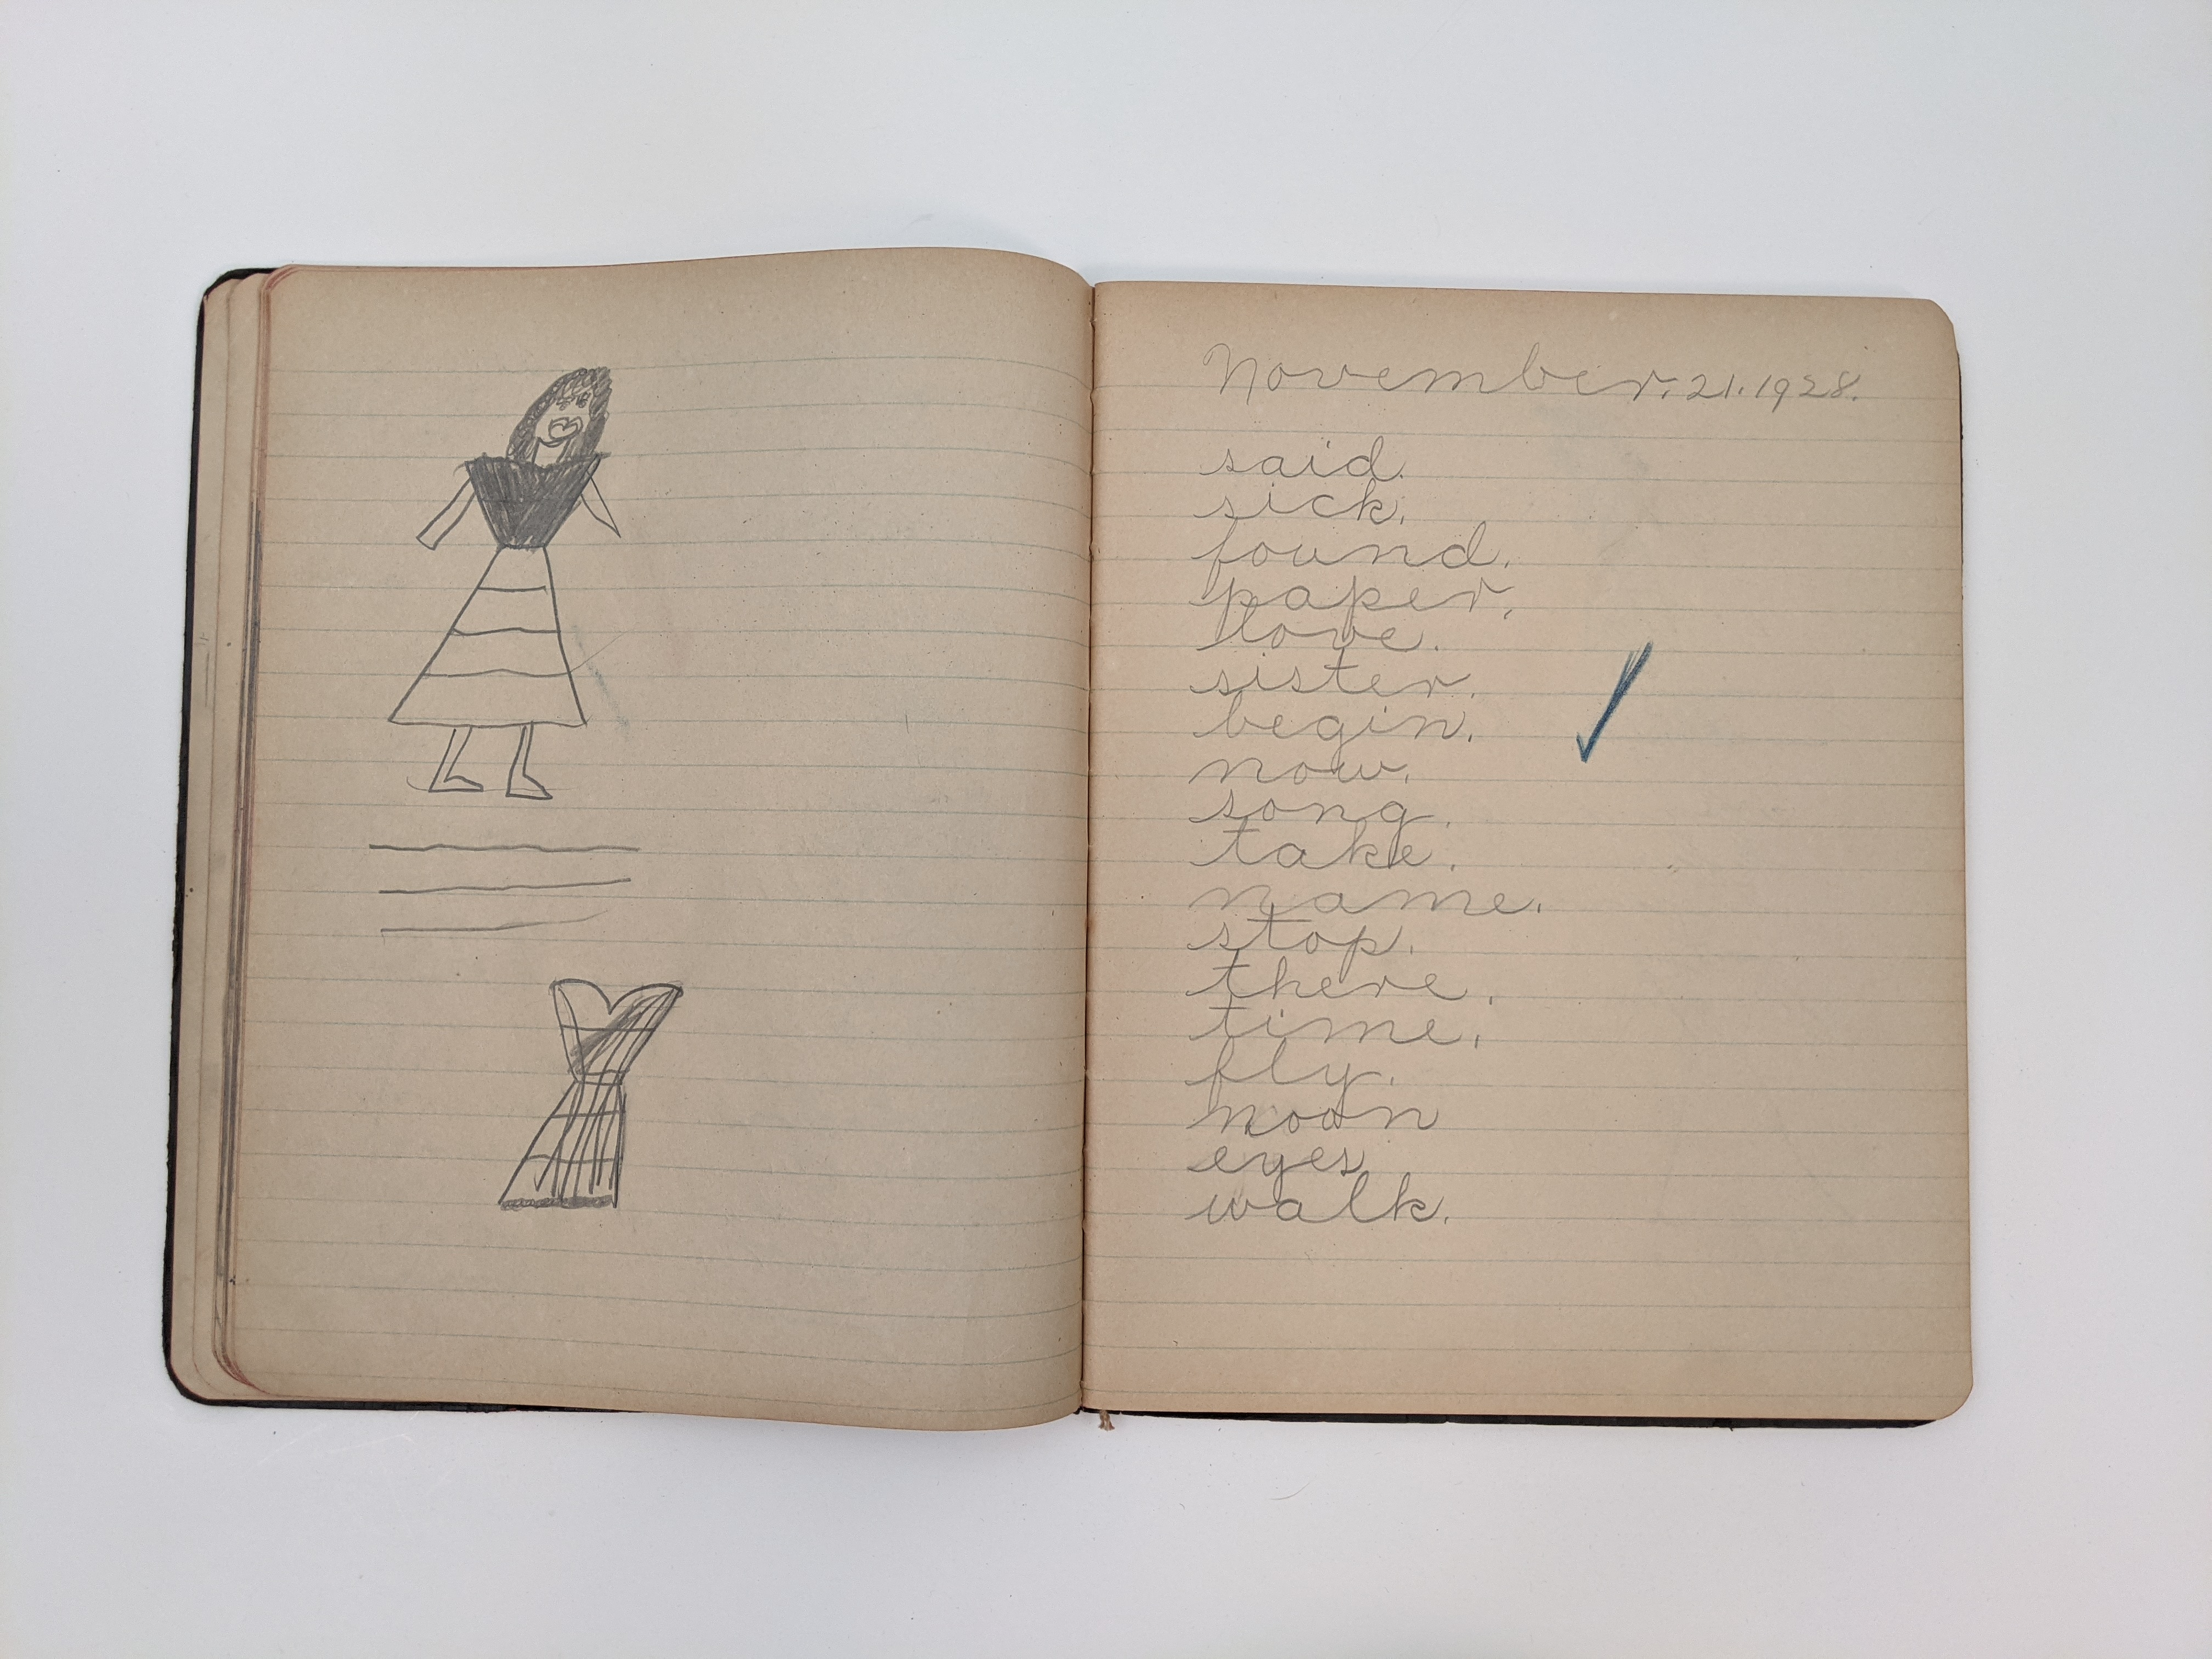 November. 21. 1928.
said.
sick.
found.
paper.
love.
sister.
begin.
now.
song.
take.
name.
stop.
there.
time.
fly.
noon
eyes
walk.